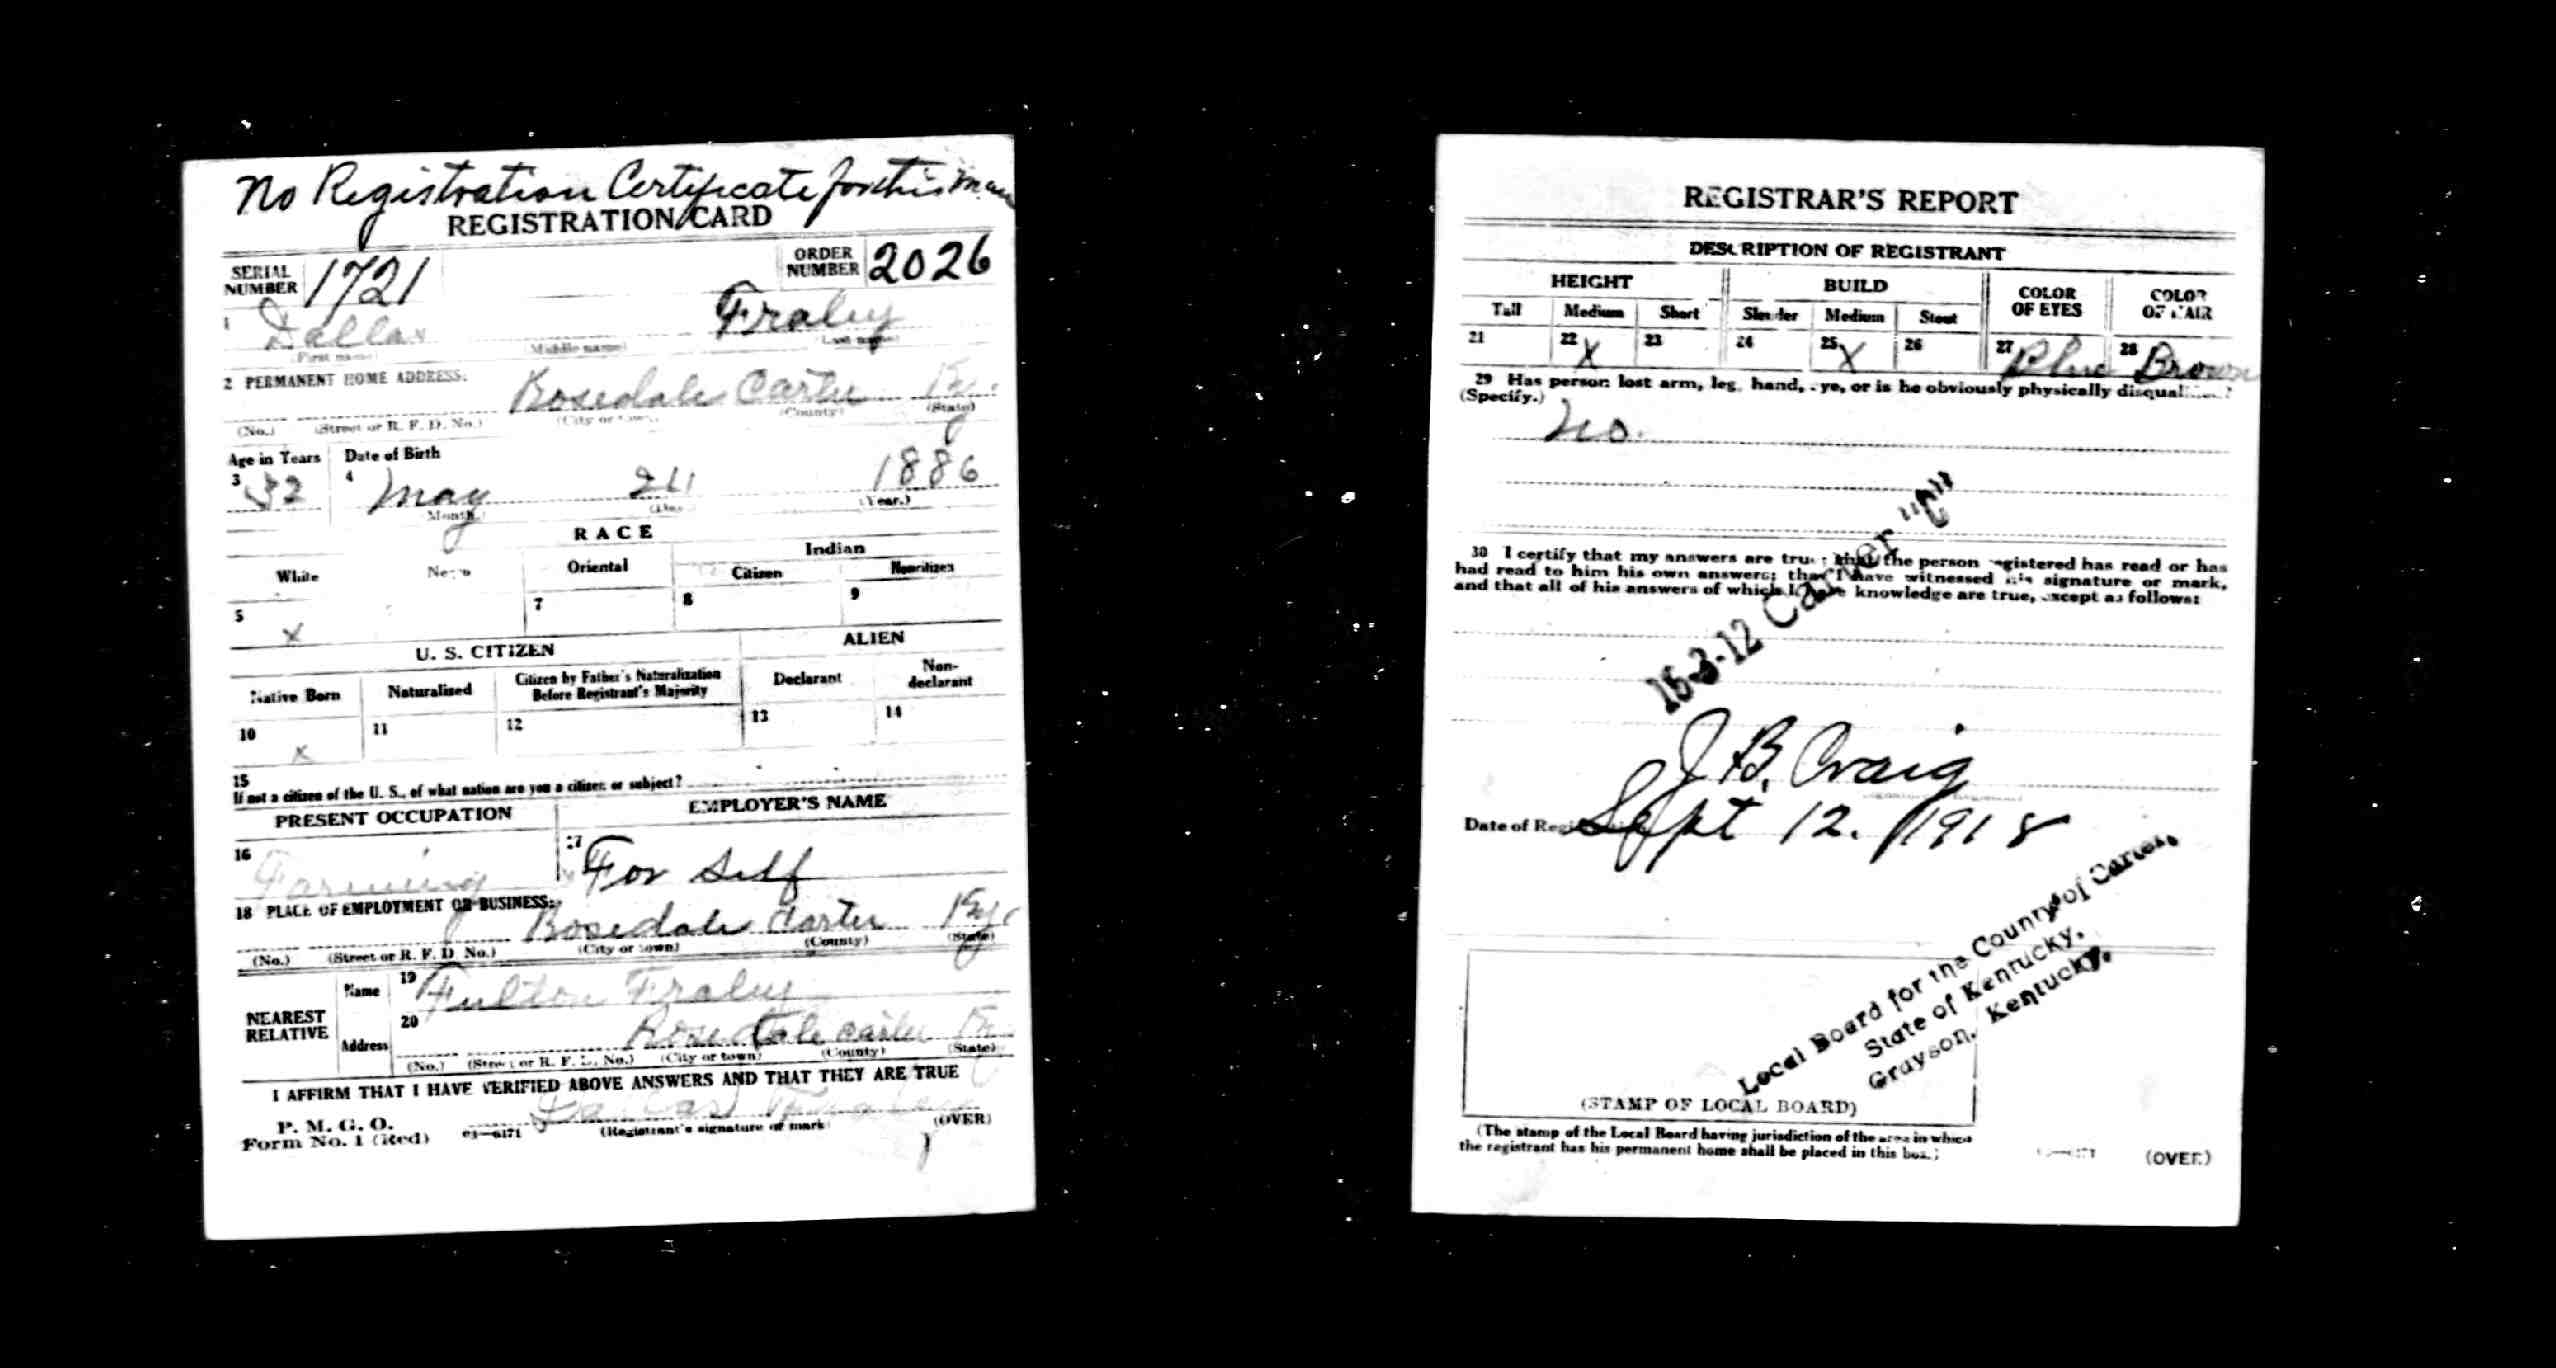 No Registration Certificate for this man
REGISTRATION CARD
SERIAL NUMBER 1721 ORDER NUMBER 2026
1 Dallas Fraley
(First name) (Middle name) (Last name)
2 PERMANENT HOME ADDRESS:
Rosedale Carter Ky.
(No.) (Street or R. F. D. No.) (City or town) (County) (State)
Age in Years Date of Birth
3 32 4 May 24 1886
(Month.) (Day.) (Year.)
RACE
White Negro Oriental Indian
Citizen Noncitizen
5 X 7 8 9
U. S. CITIZEN ALIEN
Native Born Naturalized Citizen by Father's Naturalization Before Registrant's Majority Declarant Non-declarant
10 X 11 12 13 14
15
If not a citizen of the U. S., of what nation are you a citizen or subject?
PRESENT OCCUPATION EMPLOYER'S NAME
16 Farming 17 For Self
18 PLACE OF EMPLOYMENT OR BUSINESS:
Rosedale Carter Ky.
(No.) (Street or R. F. D. No.) (City or town) (County) (State)
NEAREST RELATIVE
Name 19 Fulton Fraley
Address 20 Rosedale Carter Ky
(No.) (Street or R. F. D. No.) (City or town) (County) (State)
I AFFIRM THAT I HAVE VERIFIED ABOVE ANSWERS AND THAT THEY ARE TRUE
P. M. G. O.
Form No. 1 (Red) 03—6171 Dallas Fraley
(Registrant's signature or mark) (OVER)
REGISTRAR'S REPORT
DESCRIPTION OF REGISTRANT
HEIGHT BUILD COLOR OF EYES COLOR OF HAIR
Tall Medium Short Slender Medium Stout
21 22 X 23 24 25 X 26 27 Blue 28 Brown
29 Has person lost arm, leg, hand, eye, or is he obviously physically disqualified?
(Specify.)
No.
30 I certify that my answers are true; that the person registered has read or has
had read to him his own answers; that I have witnessed his signature or mark,
and that all of his answers of which I have knowledge are true, except as follows:
16-3-12 Carter "C"
J. B. Craig
Date of Registration Sept 12. 1918
Local Board for the County of Carter,
State of Kentucky,
Grayson, Kentucky.
(STAMP OF LOCAL BOARD)
(The stamp of the Local Board having jurisdiction of the area in which
the registrant has his permanent home shall be placed in this box.)
(OVER)